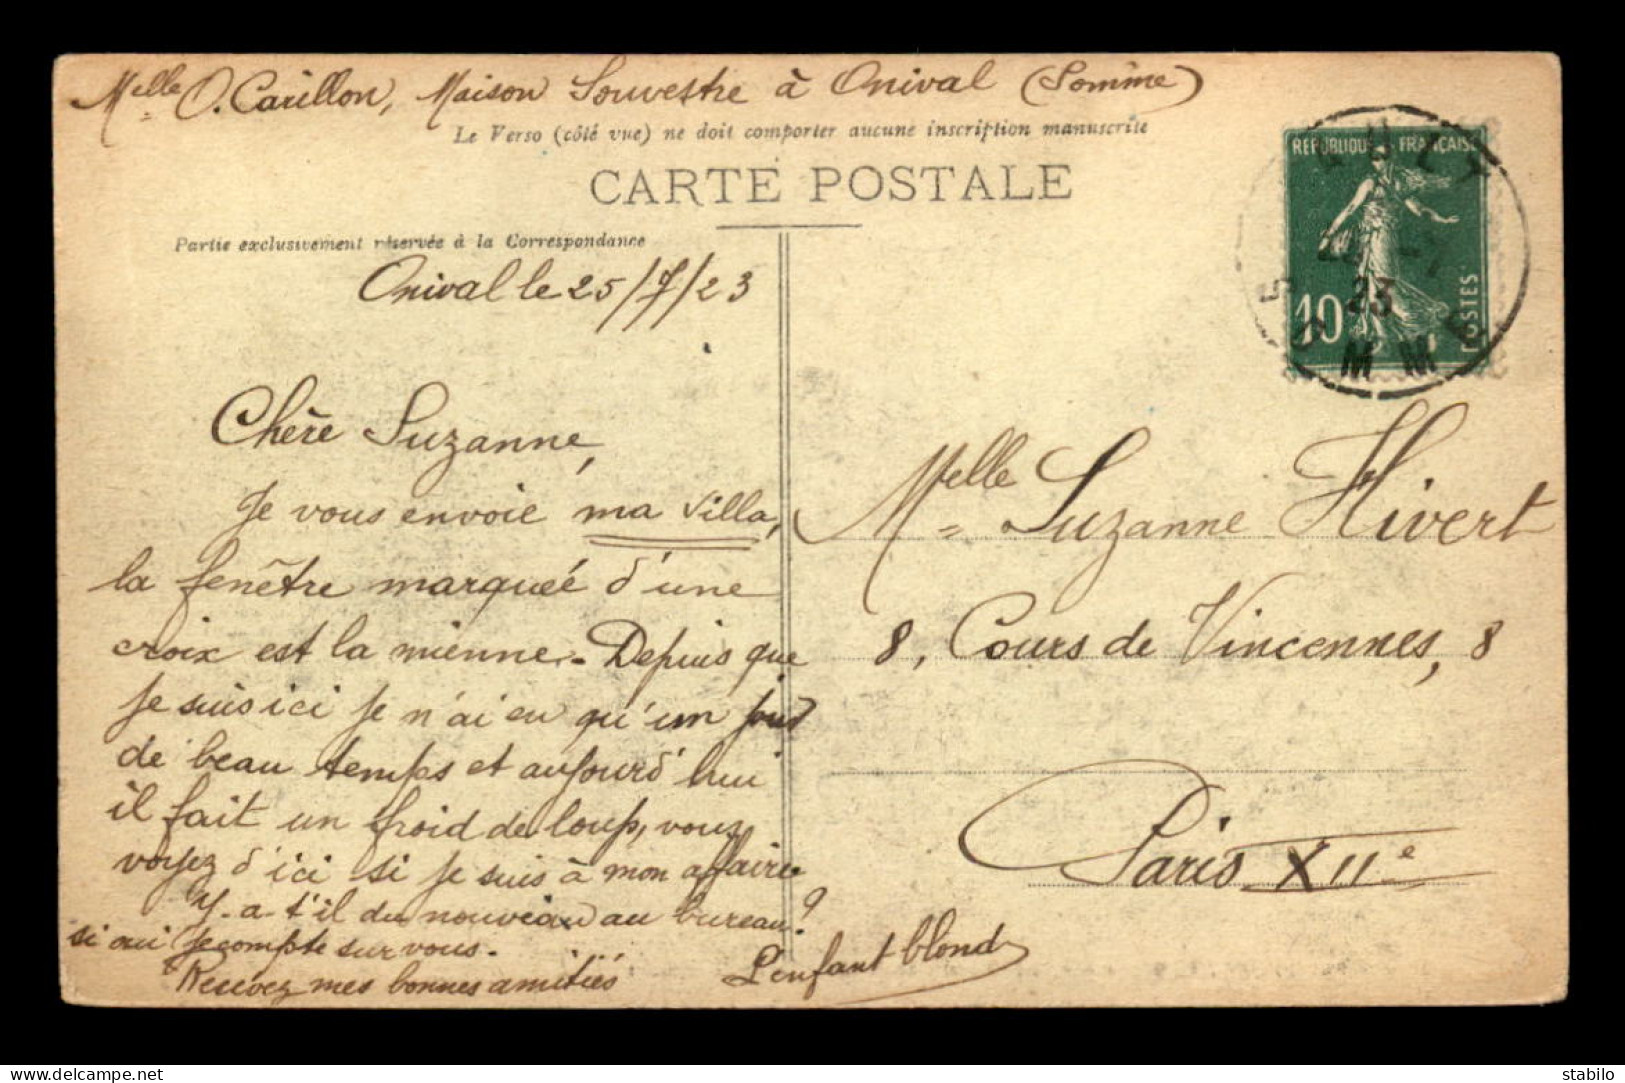 Melle O. Carillon, Maison Souvestre à Onival (Somme)
Le Verso (côté vue) ne doit comporter aucune inscription manuscrite
CARTE POSTALE
Partie exclusivement réservée à la Correspondance
REPUBLIQUE FRANÇAISE
10
POSTES
23
SOMME
Onival le 25/7/23
Chère Suzanne,
Je vous envoie ma villa,
la fenêtre marqueé d'une
croix est la mienne. Depuis que
je suis ici je n'ai eu qu'un jour
de beau temps et aujourd'hui
il fait un froid de loup, vous
voyez d'ici si je suis à mon affaire
Y-a-t'il du nouveau au bureau?
si oui je compte sur vous.
Recevez mes bonnes amitiés
L'enfant blond
Melle Suzanne Hivert
8, Cours de Vincennes, 8
Paris XIIe
stabilo
delcampe.net